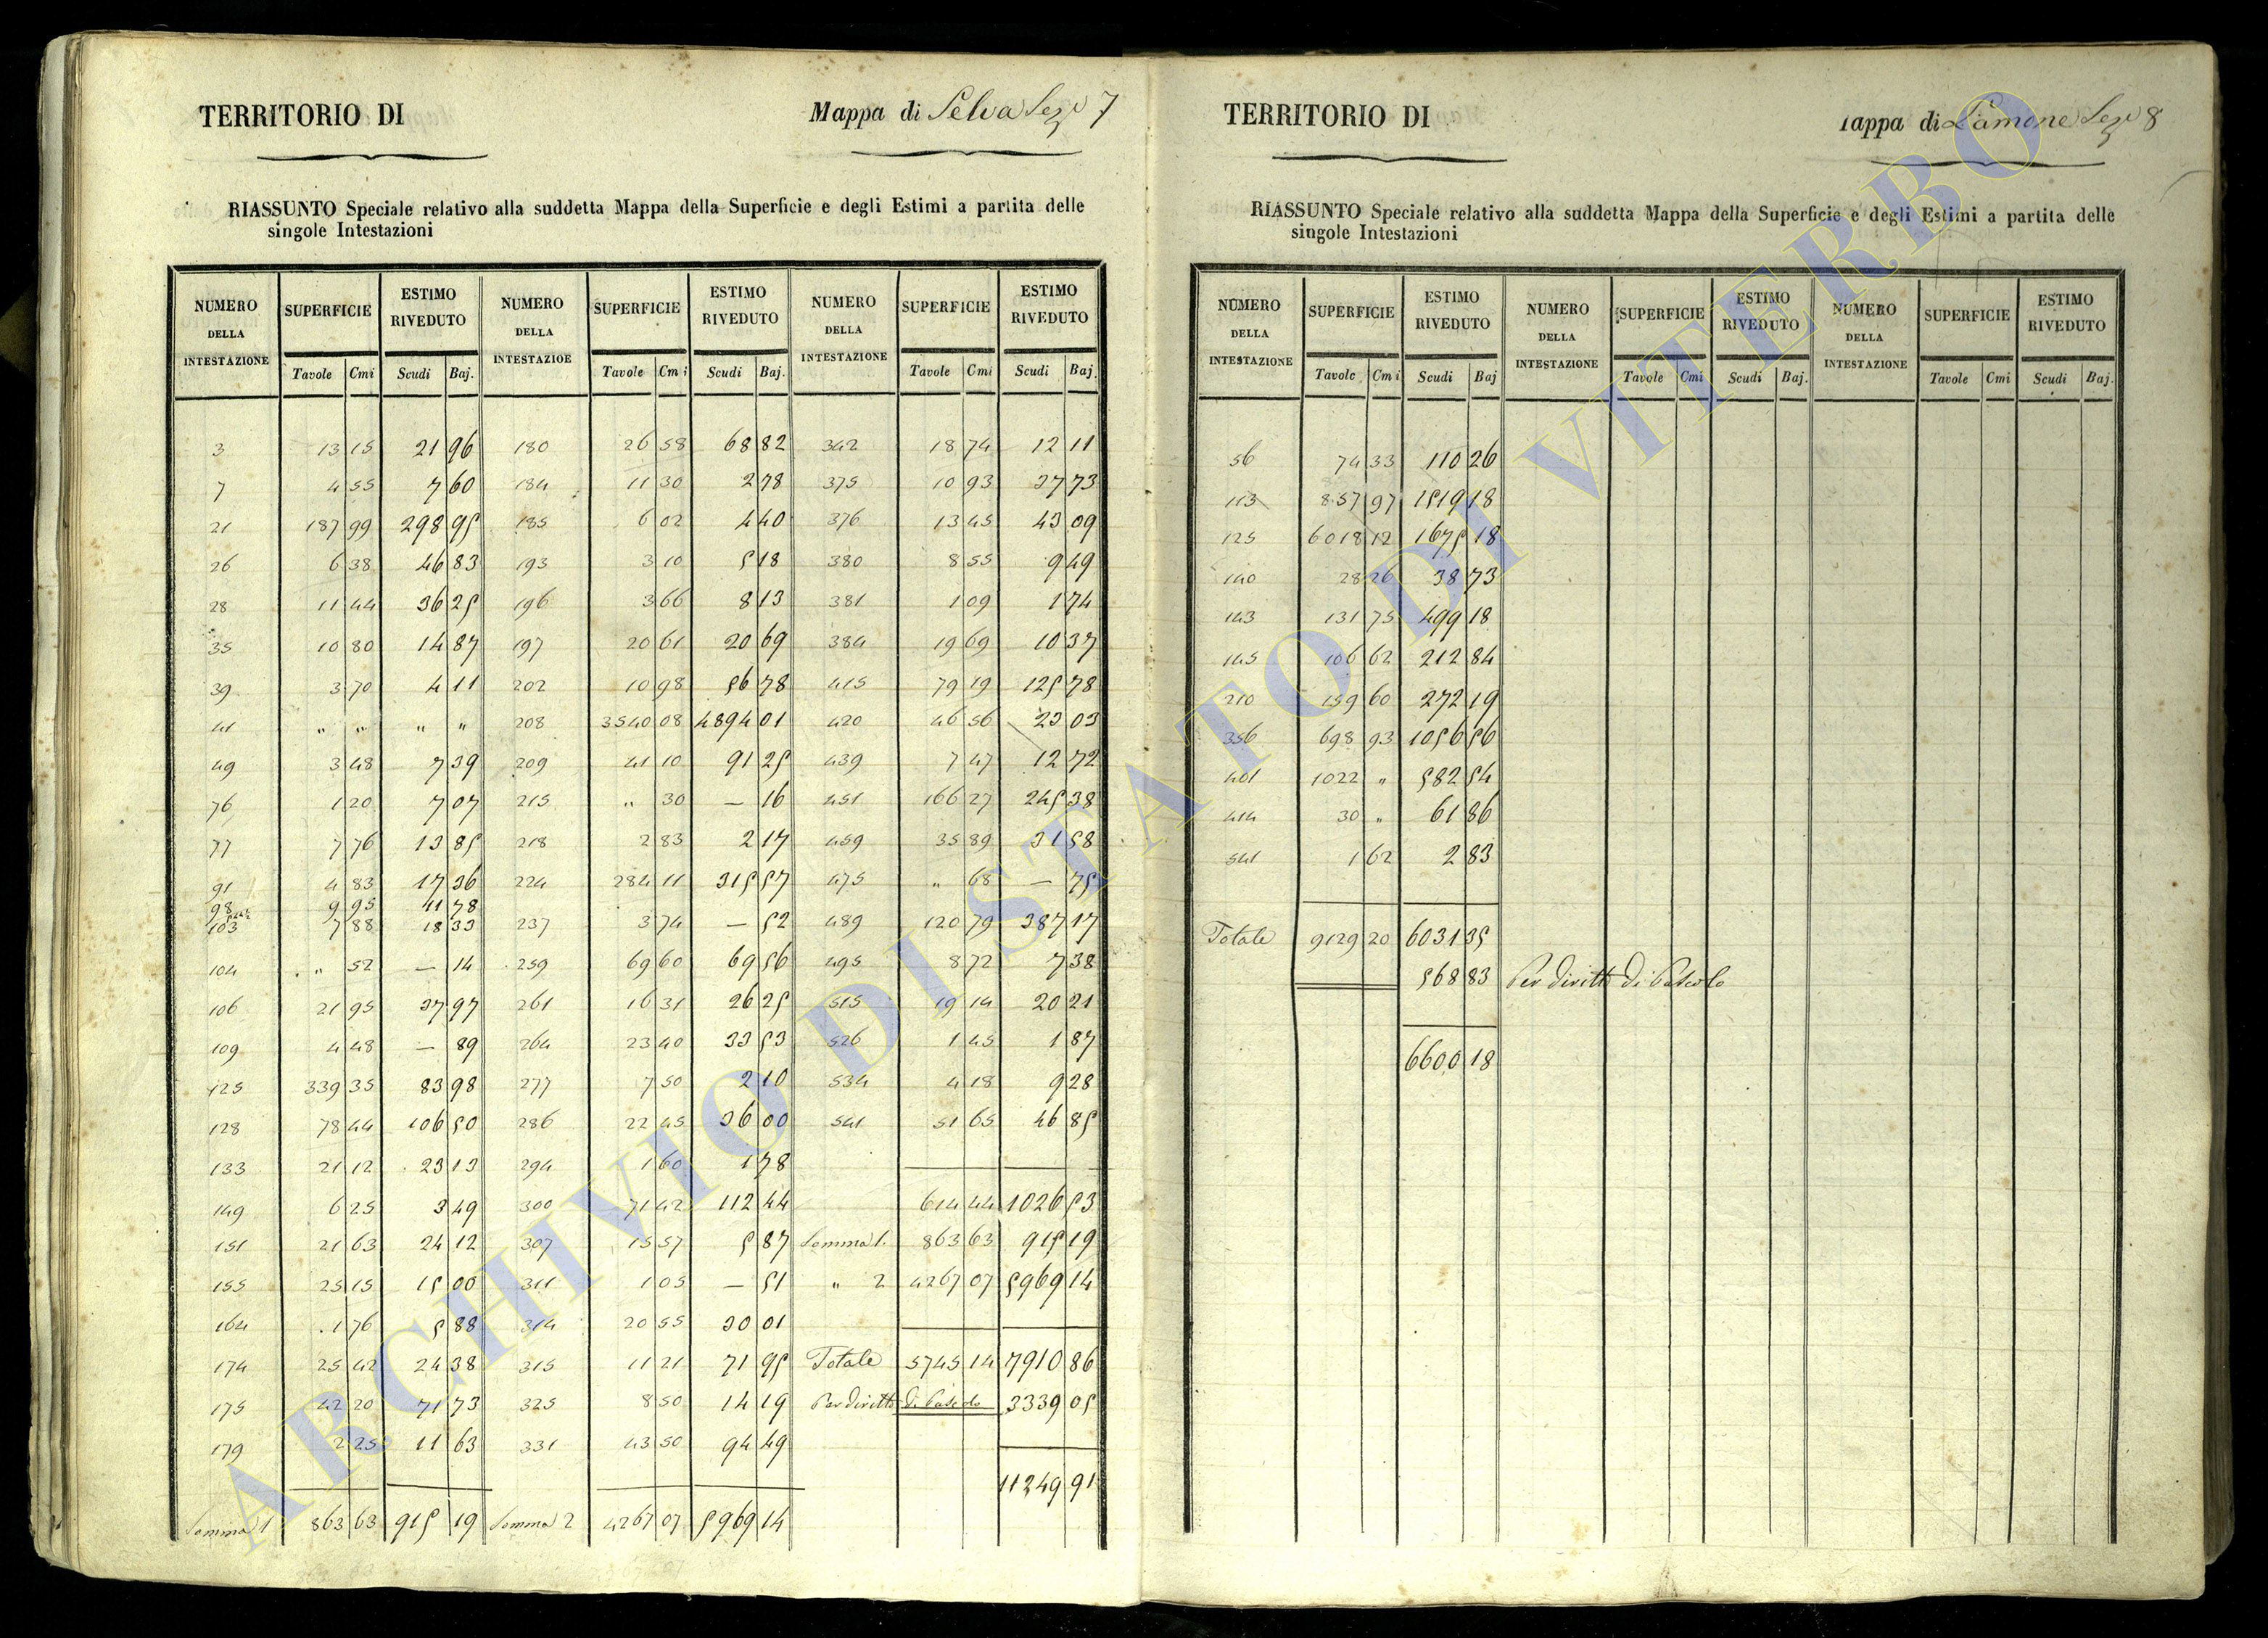 TERRITORIO DI
Mappa di Selva Sez.e 7
RIASSUNTO Speciale relativo alla suddetta Mappa della Superficie e degli Estimi a partita delle
singole Intestazioni
NUMERO DELLA INTESTAZIONE SUPERFICIE ESTIMO RIVEDUTO NUMERO DELLA INTESTAZIOE SUPERFICIE ESTIMO RIVEDUTO NUMERO DELLA INTESTAZIONE SUPERFICIE ESTIMO RIVEDUTO
Tavole Cmi Scudi Baj. Tavole Cmi Scudi Baj. Tavole Cmi Scudi Baj.
3 13 15 21 96 180 26 58 68 82 342 18 74 12 11
7 4 55 7 60 184 11 30 2 78 375 10 93 37 73
21 187 99 298 95 185 6 02 4 40 376 13 45 43 09
26 6 38 46 83 193 3 10 5 18 380 8 55 9 49
28 11 44 36 25 196 3 66 8 13 381 1 09 1 74
35 10 80 14 87 197 20 61 20 69 384 19 69 10 37
39 3 70 4 11 202 10 98 56 78 415 79 19 125 78
41 " " " " 208 3540 08 4894 01 420 46 56 23 03
49 3 48 7 39 209 41 10 91 25 439 7 47 12 72
76 1 20 7 07 215 " 30 — 16 451 166 27 245 38
77 7 76 13 85 218 2 83 2 17 459 35 89 31 58
91 4 83 17 36 224 284 11 315 57 475 " 68 — 75
98 9 95 11 78
103 7 88 18 33 237 3 74 — 52 489 120 79 387 17
104 " 52 — 14 259 69 60 69 56 495 8 72 7 38
106 21 95 37 97 261 16 31 26 25 515 19 14 20 21
109 4 48 — 89 264 23 40 33 53 526 1 45 1 87
125 339 35 83 98 277 7 50 2 10 534 4 18 9 28
128 78 44 106 50 286 22 45 36 00 541 51 65 46 85
133 21 12 23 13 294 1 60 1 78
149 6 25 3 49 300 71 42 112 44 614 44 1026 53
151 21 63 24 12 307 15 57 5 87 Somma 1. 863 63 915 19
155 25 15 15 00 311 1 05 — 51 " 2 4267 07 5969 14
164 1 76 5 88 314 20 55 30 01
174 25 42 24 38 315 11 21 71 95 Totale 5745 14 7910 86
175 42 20 71 73 325 8 50 14 19 Per diritti di Pascolo 3339 05
179 2 25 11 63 331 43 50 94 49
11249 91
Somma 1 863 63 915 19 Somma 2 4267 07 5969 14
TERRITORIO DI
appa di Lamone Sez.e 8
RIASSUNTO Speciale relativo alla suddetta Mappa della Superficie e degli Estimi a partita delle
singole Intestazioni
NUMERO DELLA INTESTAZIONE SUPERFICIE ESTIMO RIVEDUTO NUMERO DELLA INTESTAZIONE SUPERFICIE ESTIMO RIVEDUTO NUMERO DELLA INTESTAZIONE SUPERFICIE ESTIMO RIVEDUTO
Tavole Cmi Scudi Baj Tavole Cmi Scudi Baj. Tavole Cmi Scudi Baj.
56 74 33 110 26
113 857 97 1519 18
125 6018 12 1675 18
140 28 26 38 73
143 131 75 499 18
145 106 62 212 84
210 159 60 272 19
356 698 93 1056 56
401 1022 " 582 54
414 30 " 61 86
541 1 62 2 83
Totale 9129 20 6031 35
568 83 Per diritti di Pascolo
6600 18
ARCHIVIO DI STATO DI VITERBO